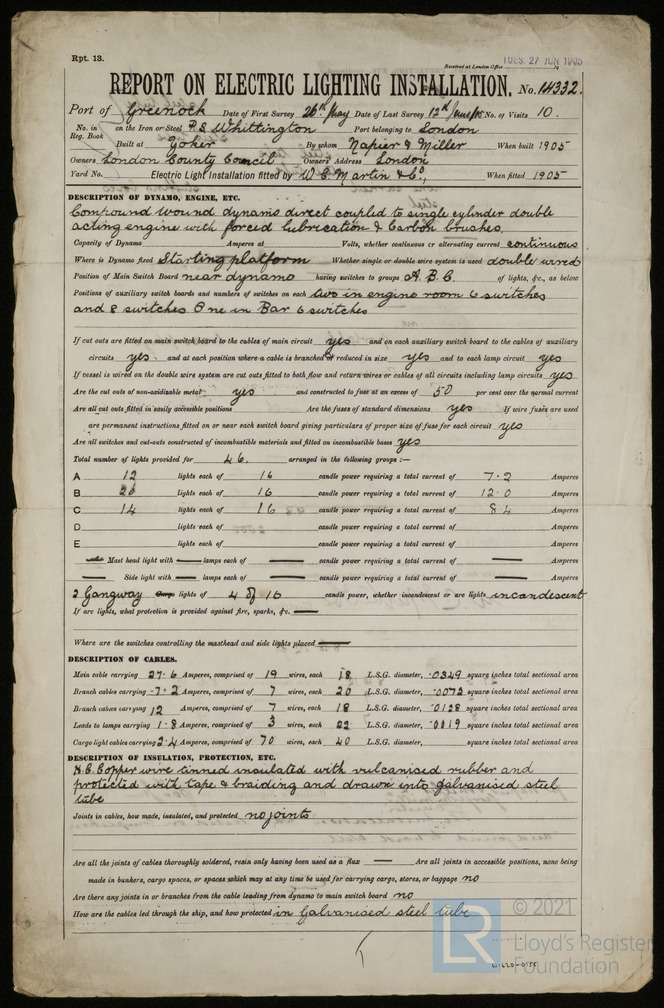 Rpt. 13.
Received at London Office TUES. 27 JUN 1905
REPORT ON ELECTRIC LIGHTING INSTALLATION. No. 14332.
Port of Greenock Date of First Survey 26th May Date of Last Survey 12th June/05 No. of Visits 10.
No. in Reg. Book on the Iron or Steel P.S. Whittington Port belonging to London
Built at Yoker By whom Napier & Miller When built 1905
Owners London County Council Owners Address London
Yard No. Electric Light Installation fitted by W. E. Martin & Co., When fitted 1905
DESCRIPTION OF DYNAMO, ENGINE, ETC.
Compound wound dynamo direct coupled to single cylinder double
acting engine with forced lubrication & Carbon brushes.
Capacity of Dynamo Amperes at Volts, whether continuous or alternating current continuous
Where is Dynamo fixed Starting platform Whether single or double wire system is used double wired
Position of Main Switch Board near dynamo having switches to groups A. B. C. of lights, &c., as below
Positions of auxiliary switch boards and numbers of switches on each two in engine room 6 switches
and 8 switches One in Bar 6 switches
If cut outs are fitted on main switch board to the cables of main circuit yes and on each auxiliary switch board to the cables of auxiliary
circuits yes and at each position where a cable is branched or reduced in size yes and to each lamp circuit yes
If vessel is wired on the double wire system are cut outs fitted to both flow and return wires or cables of all circuits including lamp circuits yes
Are the cut outs of non-oxidizable metal yes and constructed to fuse at an excess of 50 per cent over the normal current
Are all cut outs fitted in easily accessible positions Are the fuses of standard dimensions yes If wire fuses are used
are permanent instructions fitted on or near each switch board giving particulars of proper size of fuse for each circuit yes
Are all switches and cut-outs constructed of incombustible materials and fitted on incombustible bases yes
Total number of lights provided for 46. arranged in the following groups :—
A 12 lights each of 16 candle power requiring a total current of 7.2 Amperes
B 20 lights each of 16 candle power requiring a total current of 12.0 Amperes
C 14 lights each of 16 candle power requiring a total current of 8.4 Amperes
D lights each of candle power requiring a total current of Amperes
E lights each of candle power requiring a total current of Amperes
— Mast head light with — lamps each of — candle power requiring a total current of — Amperes
— Side light with — lamps each of — candle power requiring a total current of — Amperes
2 Gangway Cargo lights of 4 of 16 candle power, whether incandescent or arc lights incandescent
If arc lights, what protection is provided against fire, sparks, &c. —
Where are the switches controlling the masthead and side lights placed —
DESCRIPTION OF CABLES.
Main cable carrying 27.6 Amperes, comprised of 19 wires, each 18 L.S.G. diameter, .0349 square inches total sectional area
Branch cables carrying 7.2 Amperes, comprised of 7 wires, each 20 L.S.G. diameter, .0072 square inches total sectional area
Branch cables carrying 12 Amperes, comprised of 7 wires, each 18 L.S.G. diameter, .0128 square inches total sectional area
Leads to lamps carrying 1.8 Amperes, comprised of 3 wires, each 22 L.S.G. diameter, .0019 square inches total sectional area
Cargo light cables carrying 2.4 Amperes, comprised of 70 wires, each 40 L.S.G. diameter, square inches total sectional area
DESCRIPTION OF INSULATION, PROTECTION, ETC.
H.C. Copper wire tinned insulated with vulcanised rubber and
protected with tape & braiding and drawn into galvanised steel
tube
Joints in cables, how made, insulated, and protected no joints
Are all the joints of cables thoroughly soldered, resin only having been used as a flux — Are all joints in accessible positions, none being
made in bunkers, cargo spaces, or spaces which may at any time be used for carrying cargo, stores, or baggage no
Are there any joints in or branches from the cable leading from dynamo to main switch board no
How are the cables led through the ship, and how protected in Galvanised steel tube
© 2021
LR Lloyd's Register
Foundation
W620-0155